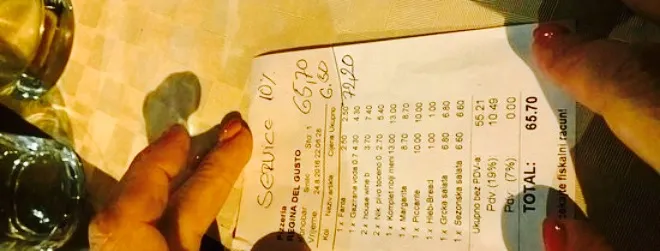 SERVICE 10%
65,70
6,50
72,20
Pizzeria
REGINA DEL GUSTO
Konobar: Sto: 1
Vrijeme: 24.8.2016 22:06:28
Kol Naziv artikla Cijena Ukupno
1 x Fanta 2.50 2.50
1 x Gazirana voda 0.7 4.30 4.30
2 x house wine b 3.70 7.40
2 x Nik pivo toceno 0. 2.70 5.40
1 x Komplet 13.00 13.00
1 x Margarita 8.70 8.70
1 x Piccante 10.00 10.00
1 x Hleb-Bread 1.00 1.00
1 x Grcka salata 6.80 6.80
1 x Sezonska salata 6.60 6.60
Ukupno bez PDV-a: 55.21
Pdv (19%) 10.49
Pdv (7%) 0.00
TOTAL: 65.70
fiskalni racun!